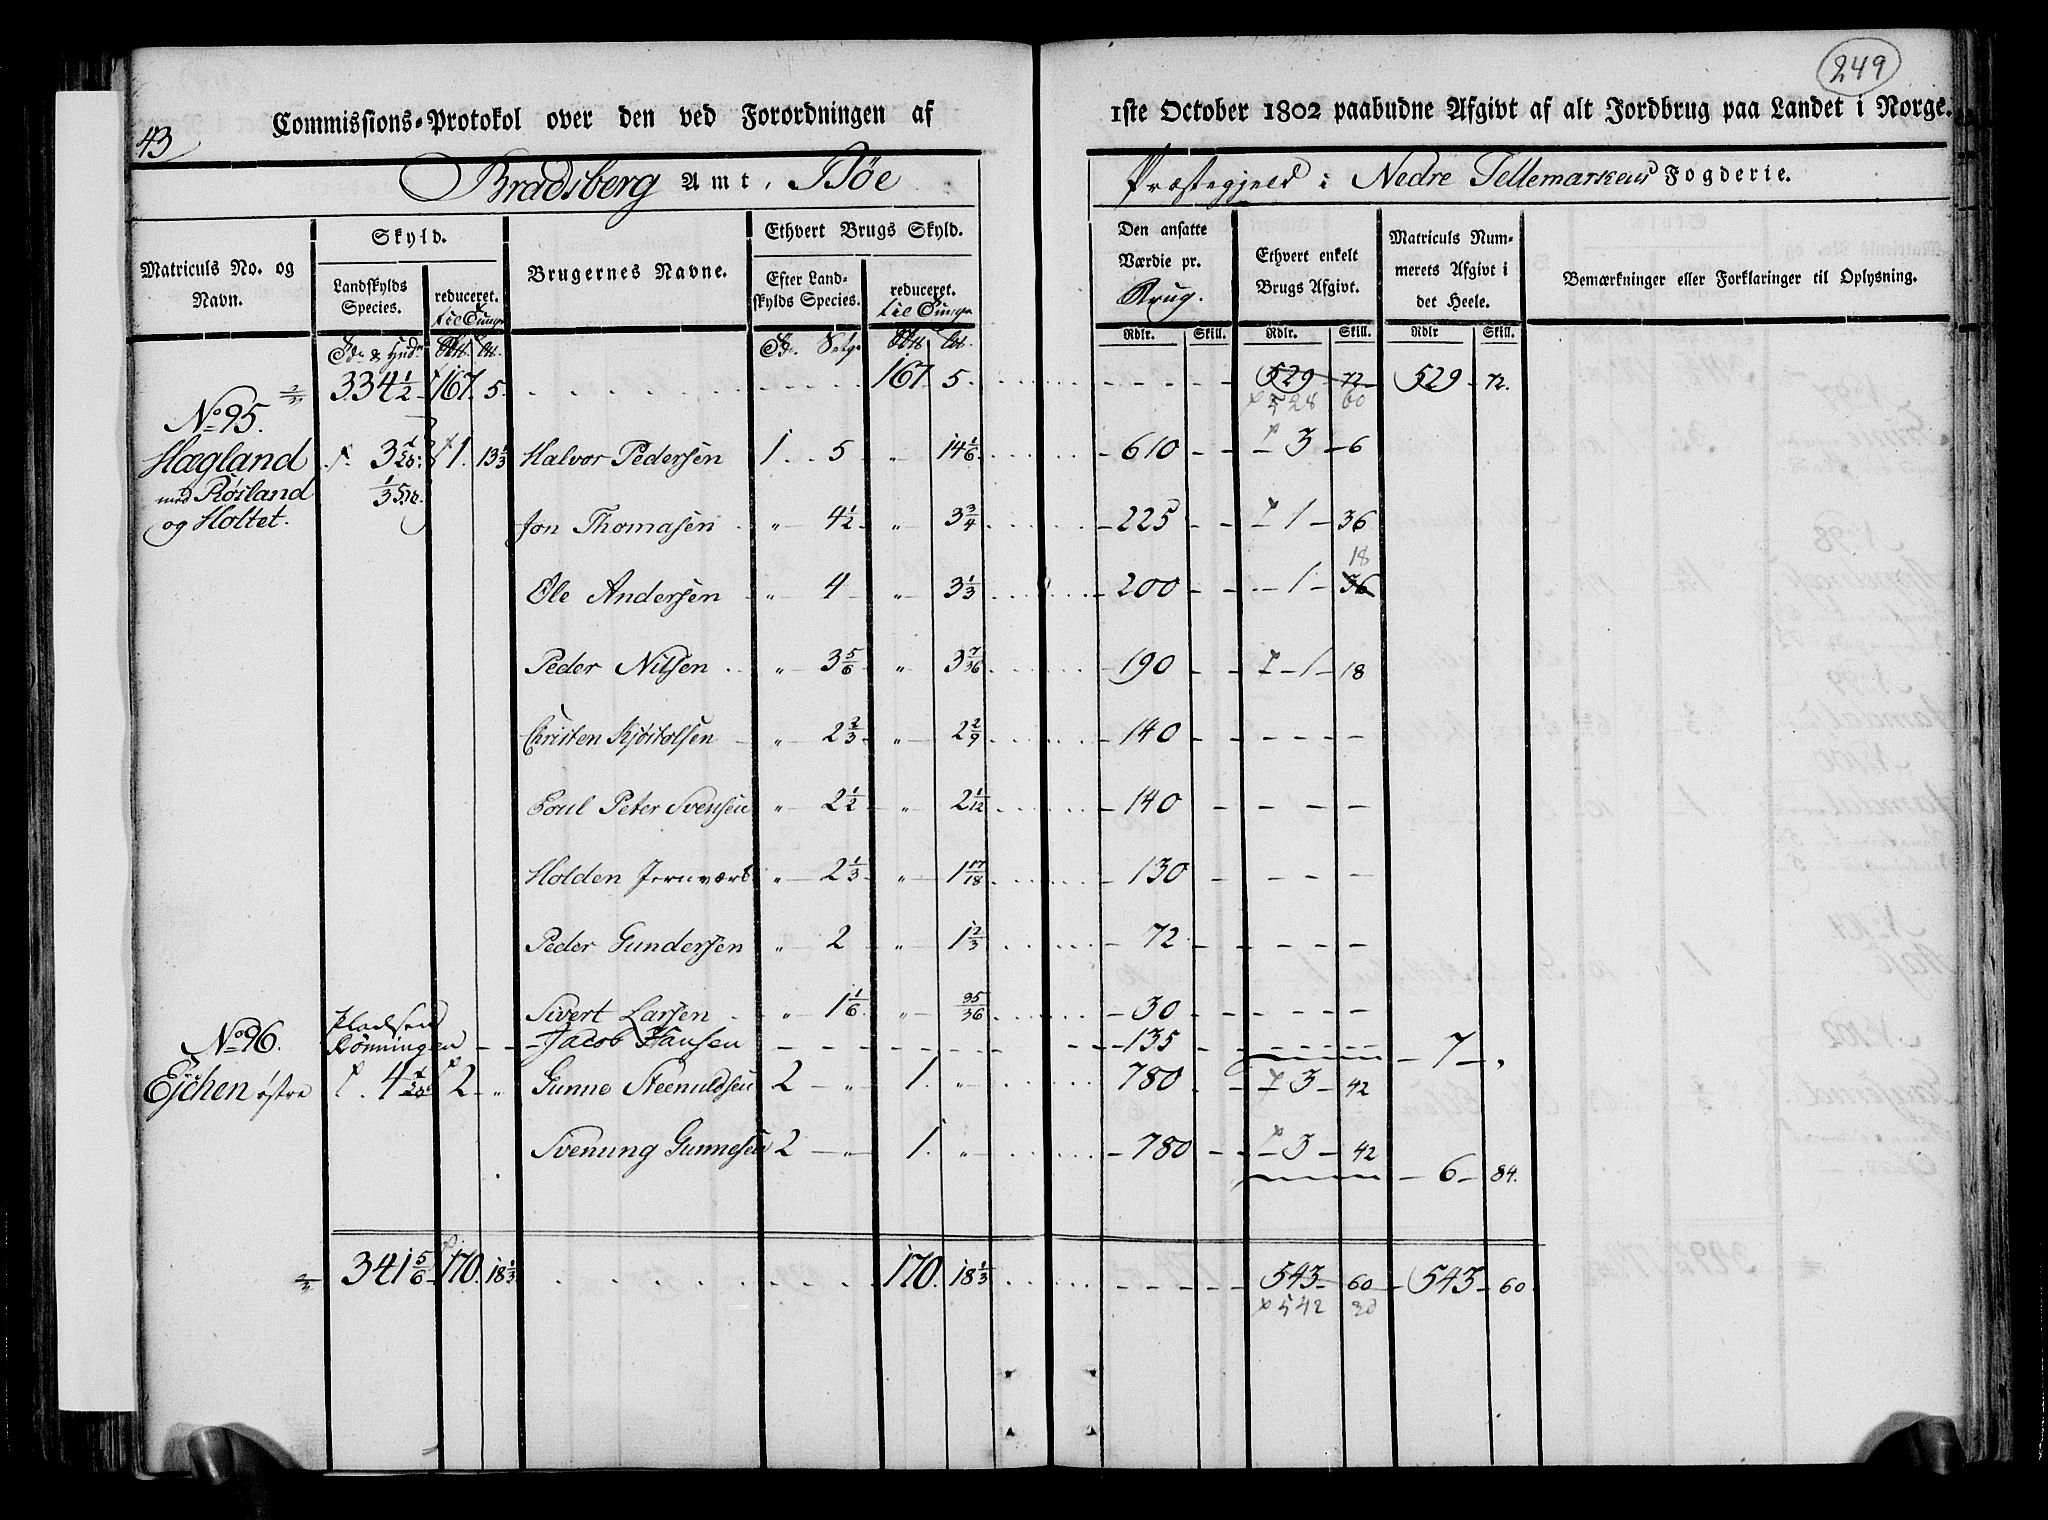 249
43
Commissions-Protokol over den ved Forordningen af 1ste October 1802 paabudne Afgivt af alt Jordbrug paa Landet i Norge.
Bradsberg Amt, Bøe Præstegjeld i Nedre Tellemarkens Fogderie.
Matriculs No. og Navn.
Skyld.
Landskylds Species.
reduceret. til Tunge
Brugernes Navne.
Ethvert Brugs Skyld.
Efter Landskylds Species.
reduceret. til Tunge
Den ansatte Værdie pr. Brug.
Ethvert enkelt Brugs Afgivt.
Matriculs Nummerets Afgivt i det Heele.
Bemærkninger eller Forklaringer til Oplysning.
Rdlr. Skill. Rdlr. Skill. Rdlr Skill.
334 1/2 167. 5. 167. 5. 529 72 529 72.
528 60
No 95.
Hægland 3 1. 13 1/3 Halvor Pedersen 1 5 " 14 1/6 610 3 6
med Røisland
og Holtet.
Jon Thomasen " 4 1/2 " 3 3/4 225 1 36
18
Ole Andersen " 4 " 3 1/3 200 1 36
Peder Nilsen " 3 5/6 " 3 7/36 190 1 18
Christen Kjøstolsen " 2 2/3 " 2 2/9 140
Poul Peter Svensen " 2 1/2 " 2 1/12 140
Holden Jernværk " 2 1/3 " 1 17/18 130
Peder Gundersen " 2 " 1 2/3 72
Sivert Larsen " 1 1/6 " 35/36 30
Pladsen Rønningen Jacob Hansen 135 7 "
No 96.
Ejchen østre 4 2 " Gunne Steenuldsen 2 " 1. " 780 3 42
Svenung Gunnesen 2 " 1. " 780 3 42
6 84.
341 5/6 170. 18 1/3 170. 18 1/3 543 60 543 60.
542 30